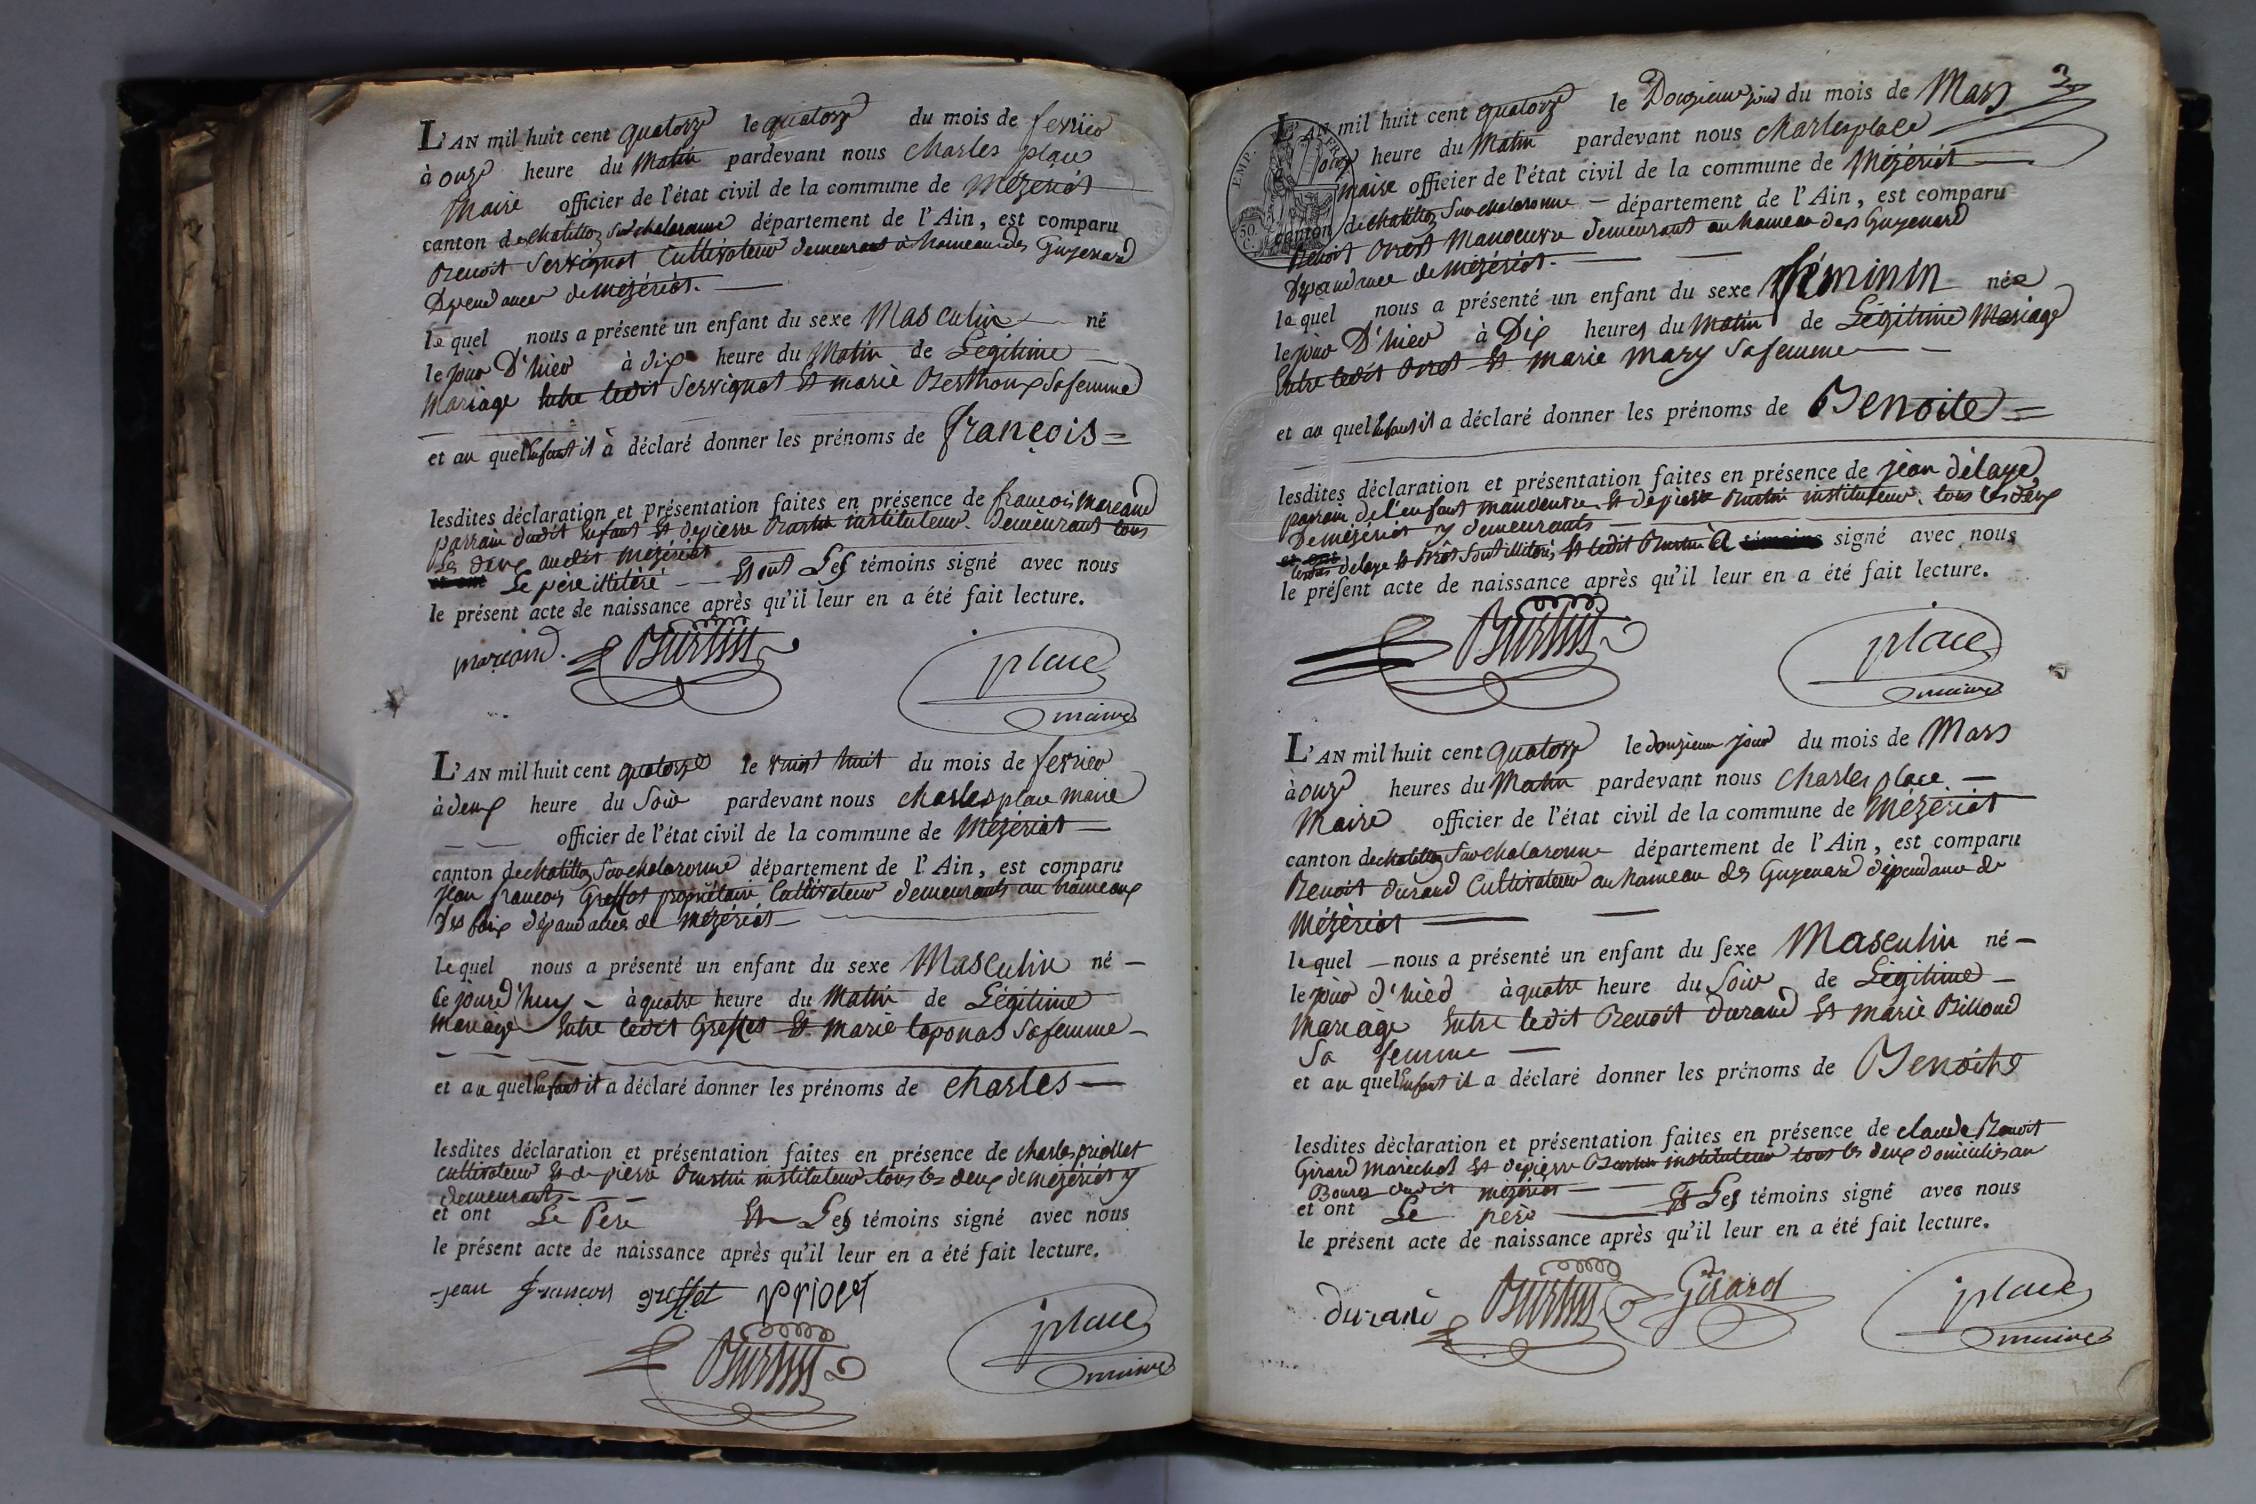 L'AN mil huit cent quatorze le quatorze du mois de fevrier
à onze heure du Matin pardevant nous charles place
Maire officier de l'état civil de la commune de Mézériat
canton de chatillon sur chalaronne département de l'Ain, est comparu
Benoit Servignat Cultivateur demeurant à hameau des Guyenard
Dependances de Mézériat.
le quel nous a présenté un enfant du sexe Masculin né
le jour D'hier à dix heure du Matin de Légitime
Mariage Entre ledit Servignat Et marie Berthoux sa femme
et au quel Enfant il à déclaré donner les prénoms de françois
lesdites déclaration et présentation faites en présence de francois Marcand
parrain dudit Enfant Et de pierre Burtin instituteur. demeurant tous
Les deux audit Mézériat
et ont Le père illitéré Et ont Les témoins signé avec nous
le présent acte de naissance après qu'il leur en a été fait lecture.
marcand. Burtin place
maire
L'AN mil huit cent quatorze le vingt huit du mois de fevrier
à deux heure du Soir pardevant nous charles place maire
officier de l'état civil de la commune de Mézériat
canton de chatillon Sur chalaronne département de l'Ain, est comparu
jean francois Greffet propriétaire Cultivateur demeurants au hameaux
des dépandances de Mézériat
le quel nous a présenté un enfant du sexe Masculin né
Ce jourd'huy à quatre heure du Matin de Légitime
Mariage Entre ledit Greffet Et Marie laponas Sa femme
et au quel Enfant il a déclaré donner les prénoms de charles
lesdites déclaration et présentation faites en présence de charles priollet
cultivateur Et de pierre Burtin instituteur tous les deux de mézériat y
demeurants
et ont Le Pere Et Les témoins signé avec nous
le présent acte de naissance après qu'il leur en a été fait lecture.
jean françois greffet
Burtin place
maire
3
L'AN mil huit cent quatorze le Douzieme jour du mois de Mars
onze heure du Matin pardevant nous charles place
maire officier de l'état civil de la commune de Mézériat
canton de chatillon Sur chalaronne département de l'Ain, est comparu
Benoit Manoeuvre demeurant au hameau des Guyenard
Dépandance de Mézériat.
le quel nous a présenté un enfant du sexe féminin née
le jour D'hier à Dix heures du Matin de Légitime Mariage
Entre ledit Et Marie Mary Sa femme
et au quel Enfant il a déclaré donner les prénoms de Benoite
lesdites déclaration et présentation faites en présence de jean délaye
parrain de l'enfant manoeuvre Et de pierre Burtin instituteur. tous les deux
De mézériat y demeurants
delaye Sont illitérés, Et ledit Burtin A signé avec nous
le présent acte de naissance après qu'il leur en a été fait lecture.
Burtin place
maire
L'AN mil huit cent quatorze le douzieme jour du mois de Mars
à onze heures du Matin pardevant nous Charles place
Maire officier de l'état civil de la commune de Mézériat
canton de chatillon Sur chalaronne département de l'Ain, est comparu
Benoit durand Cultivateur au hameau des Guyenard dépendance de
Mézériat
le quel nous a présenté un enfant du sexe Masculin né
le jour d'hier à quatre heure du Soir de Légitime
Mariage Entre ledit Benoit durand Et Marie Billoud
Sa femme
et au quel Enfant il a déclaré donner les prénoms de Benoite
lesdites déclaration et présentation faites en présence de claude Benoit
Girard Maréchal Et de pierre Burtin instituteur tous les deux domiciliés au
Bourg dudit Mézériat
et ont Le père Et Les témoins signé avec nous
le présent acte de naissance après qu'il leur en a été fait lecture.
durand Burtin Girard place
maire